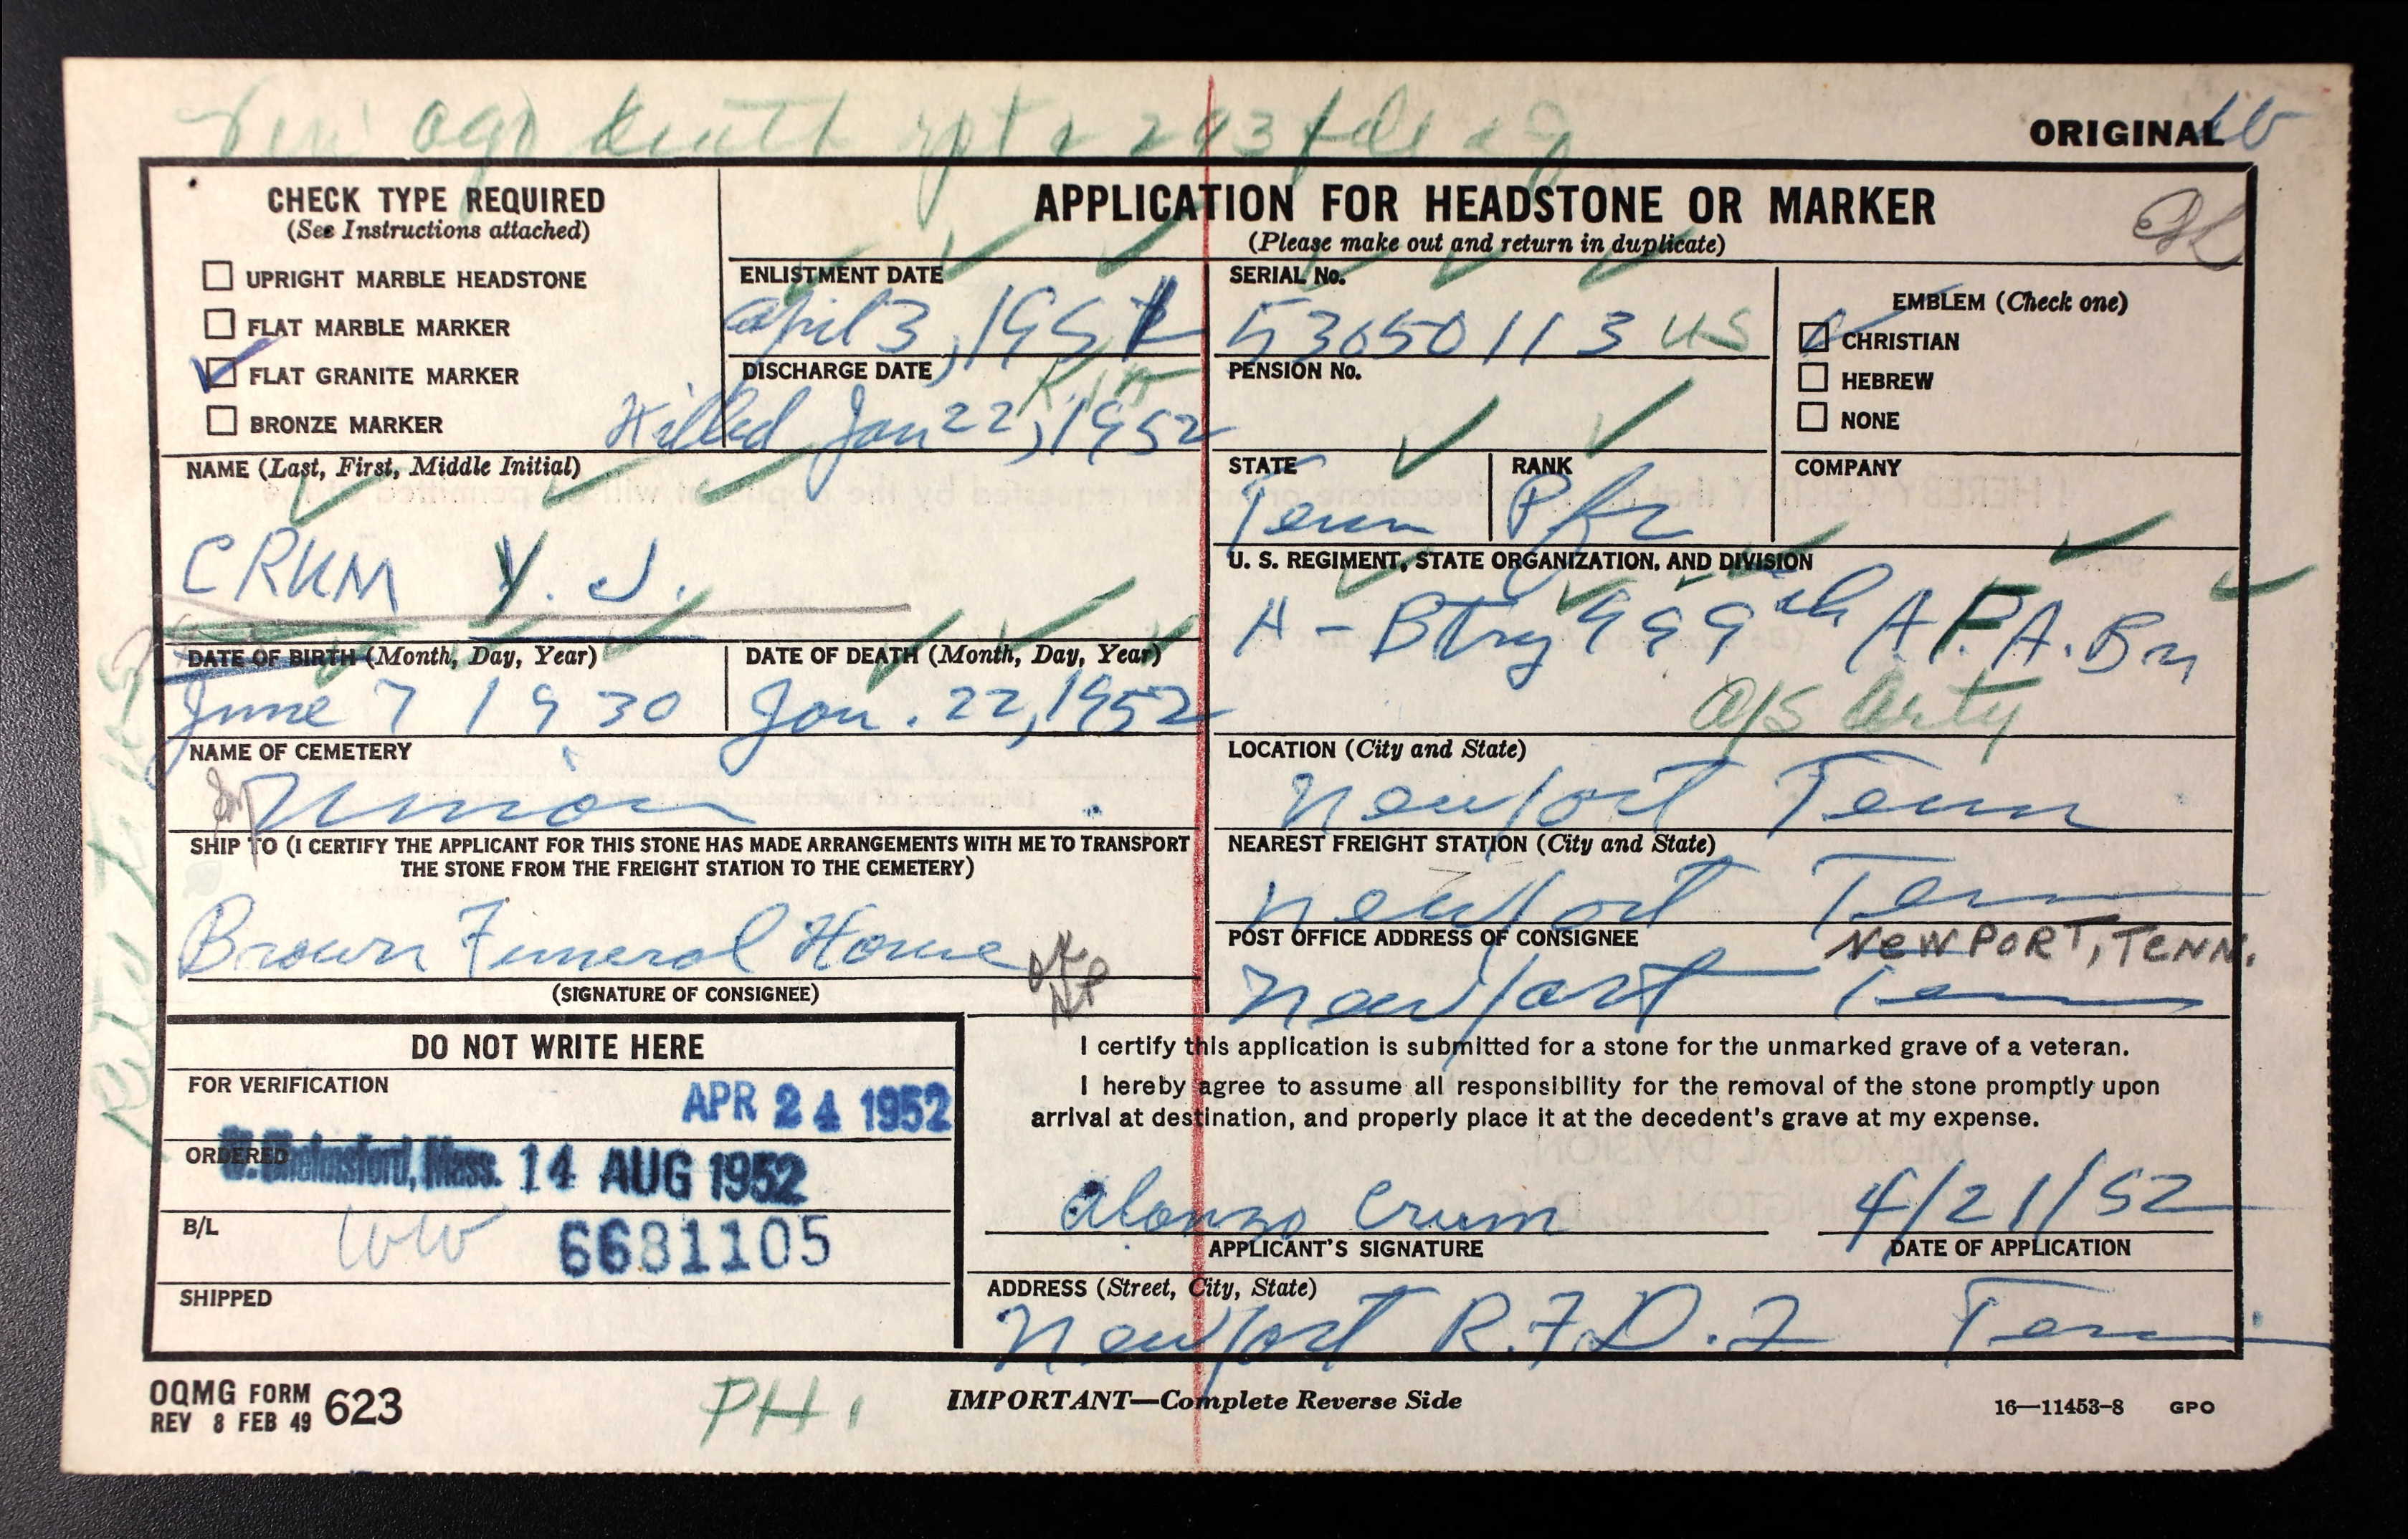 ORIGINAL
CHECK TYPE REQUIRED
(See Instructions attached)
UPRIGHT MARBLE HEADSTONE
FLAT MARBLE MARKER
FLAT GRANITE MARKER
BRONZE MARKER
APPLICATION FOR HEADSTONE OR MARKER
(Please make out and return in duplicate)
ENLISTMENT DATE
April 3, 1951
DISCHARGE DATE
KIA
Killed Jan 22, 1952
SERIAL No.
53050113 US
PENSION No.
EMBLEM (Check one)
CHRISTIAN
HEBREW
NONE
NAME (Last, First, Middle Initial)
CRUM Y. J.
STATE
Tenn
RANK
Pfc
COMPANY
U. S. REGIMENT, STATE ORGANIZATION, AND DIVISION
A - Btry 999th A. F. A. Bn
O/S Arty
DATE OF BIRTH (Month, Day, Year)
June 7 1930
DATE OF DEATH (Month, Day, Year)
Jan. 22, 1952
NAME OF CEMETERY
Union
LOCATION (City and State)
Newport Tenn
SHIP TO (I CERTIFY THE APPLICANT FOR THIS STONE HAS MADE ARRANGEMENTS WITH ME TO TRANSPORT
THE STONE FROM THE FREIGHT STATION TO THE CEMETERY)
Brown Funeral Home
(SIGNATURE OF CONSIGNEE)
NEAREST FREIGHT STATION (City and State)
Newport Tenn
POST OFFICE ADDRESS OF CONSIGNEE
NEWPORT, TENN.
Newport Tenn
DO NOT WRITE HERE
FOR VERIFICATION
APR 24 1952
ORDERED
W. Chelmsford, Mass. 14 AUG 1952
B/L
WW 6681105
SHIPPED
I certify this application is submitted for a stone for the unmarked grave of a veteran.
I hereby agree to assume all responsibility for the removal of the stone promptly upon
arrival at destination, and properly place it at the decedent's grave at my expense.
Alonzo Crum
APPLICANT'S SIGNATURE
4/21/52
DATE OF APPLICATION
ADDRESS (Street, City, State)
Newport R.F.D. 2 Tenn
OQMG FORM 623
REV 8 FEB 49
PH 1
IMPORTANT—Complete Reverse Side
16—11453-8 GPO